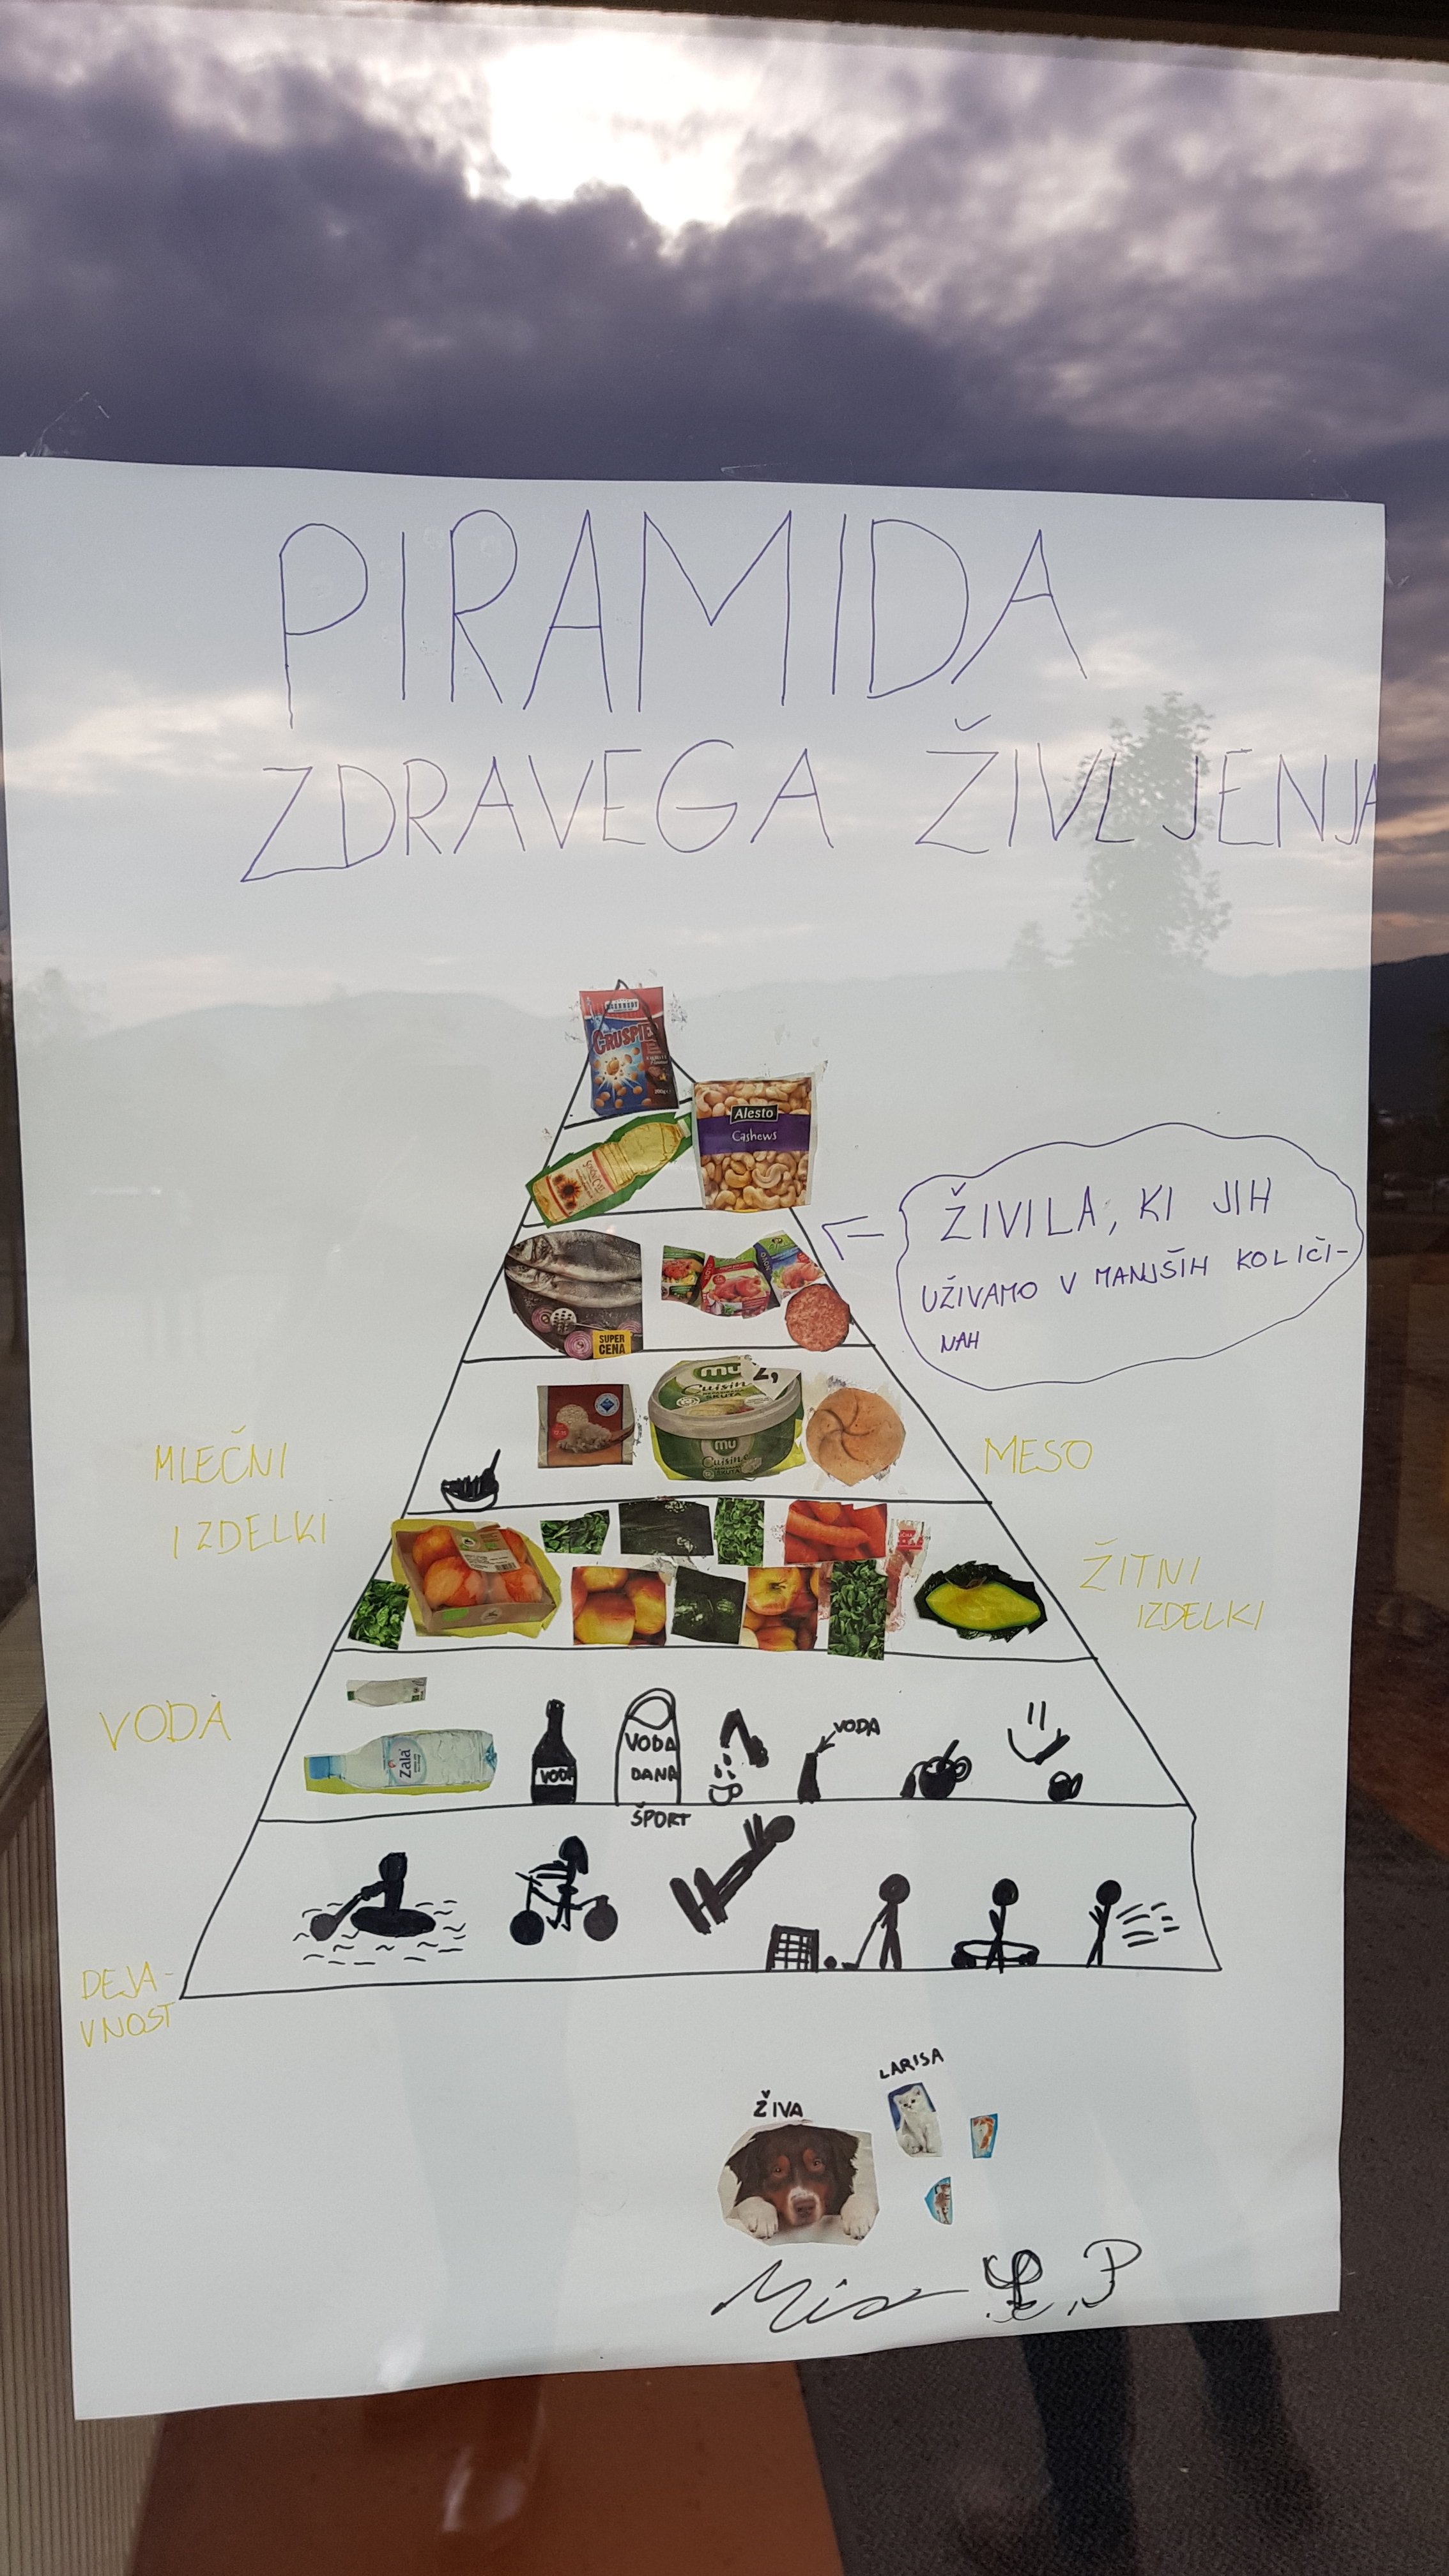 PIRAMIDA
ZDRAVEGA ŽIVLJENJA
CRUSPIES
Alesto
Cashews
ŽIVILA, KI JIH
UŽIVAMO V MANJŠIH KOLIČI-
NAH
SUPER
CENA
mu
Cuisine
SKUTA
mu
Cuisine
SKUTA
MLEČNI
IZDELKI
MESO
ŽITNI
IZDELKI
VODA
Zala
VODA
VODA
DANA
VODA
ŠPORT
DEJA-
VNOST
LARISA
ŽIVA